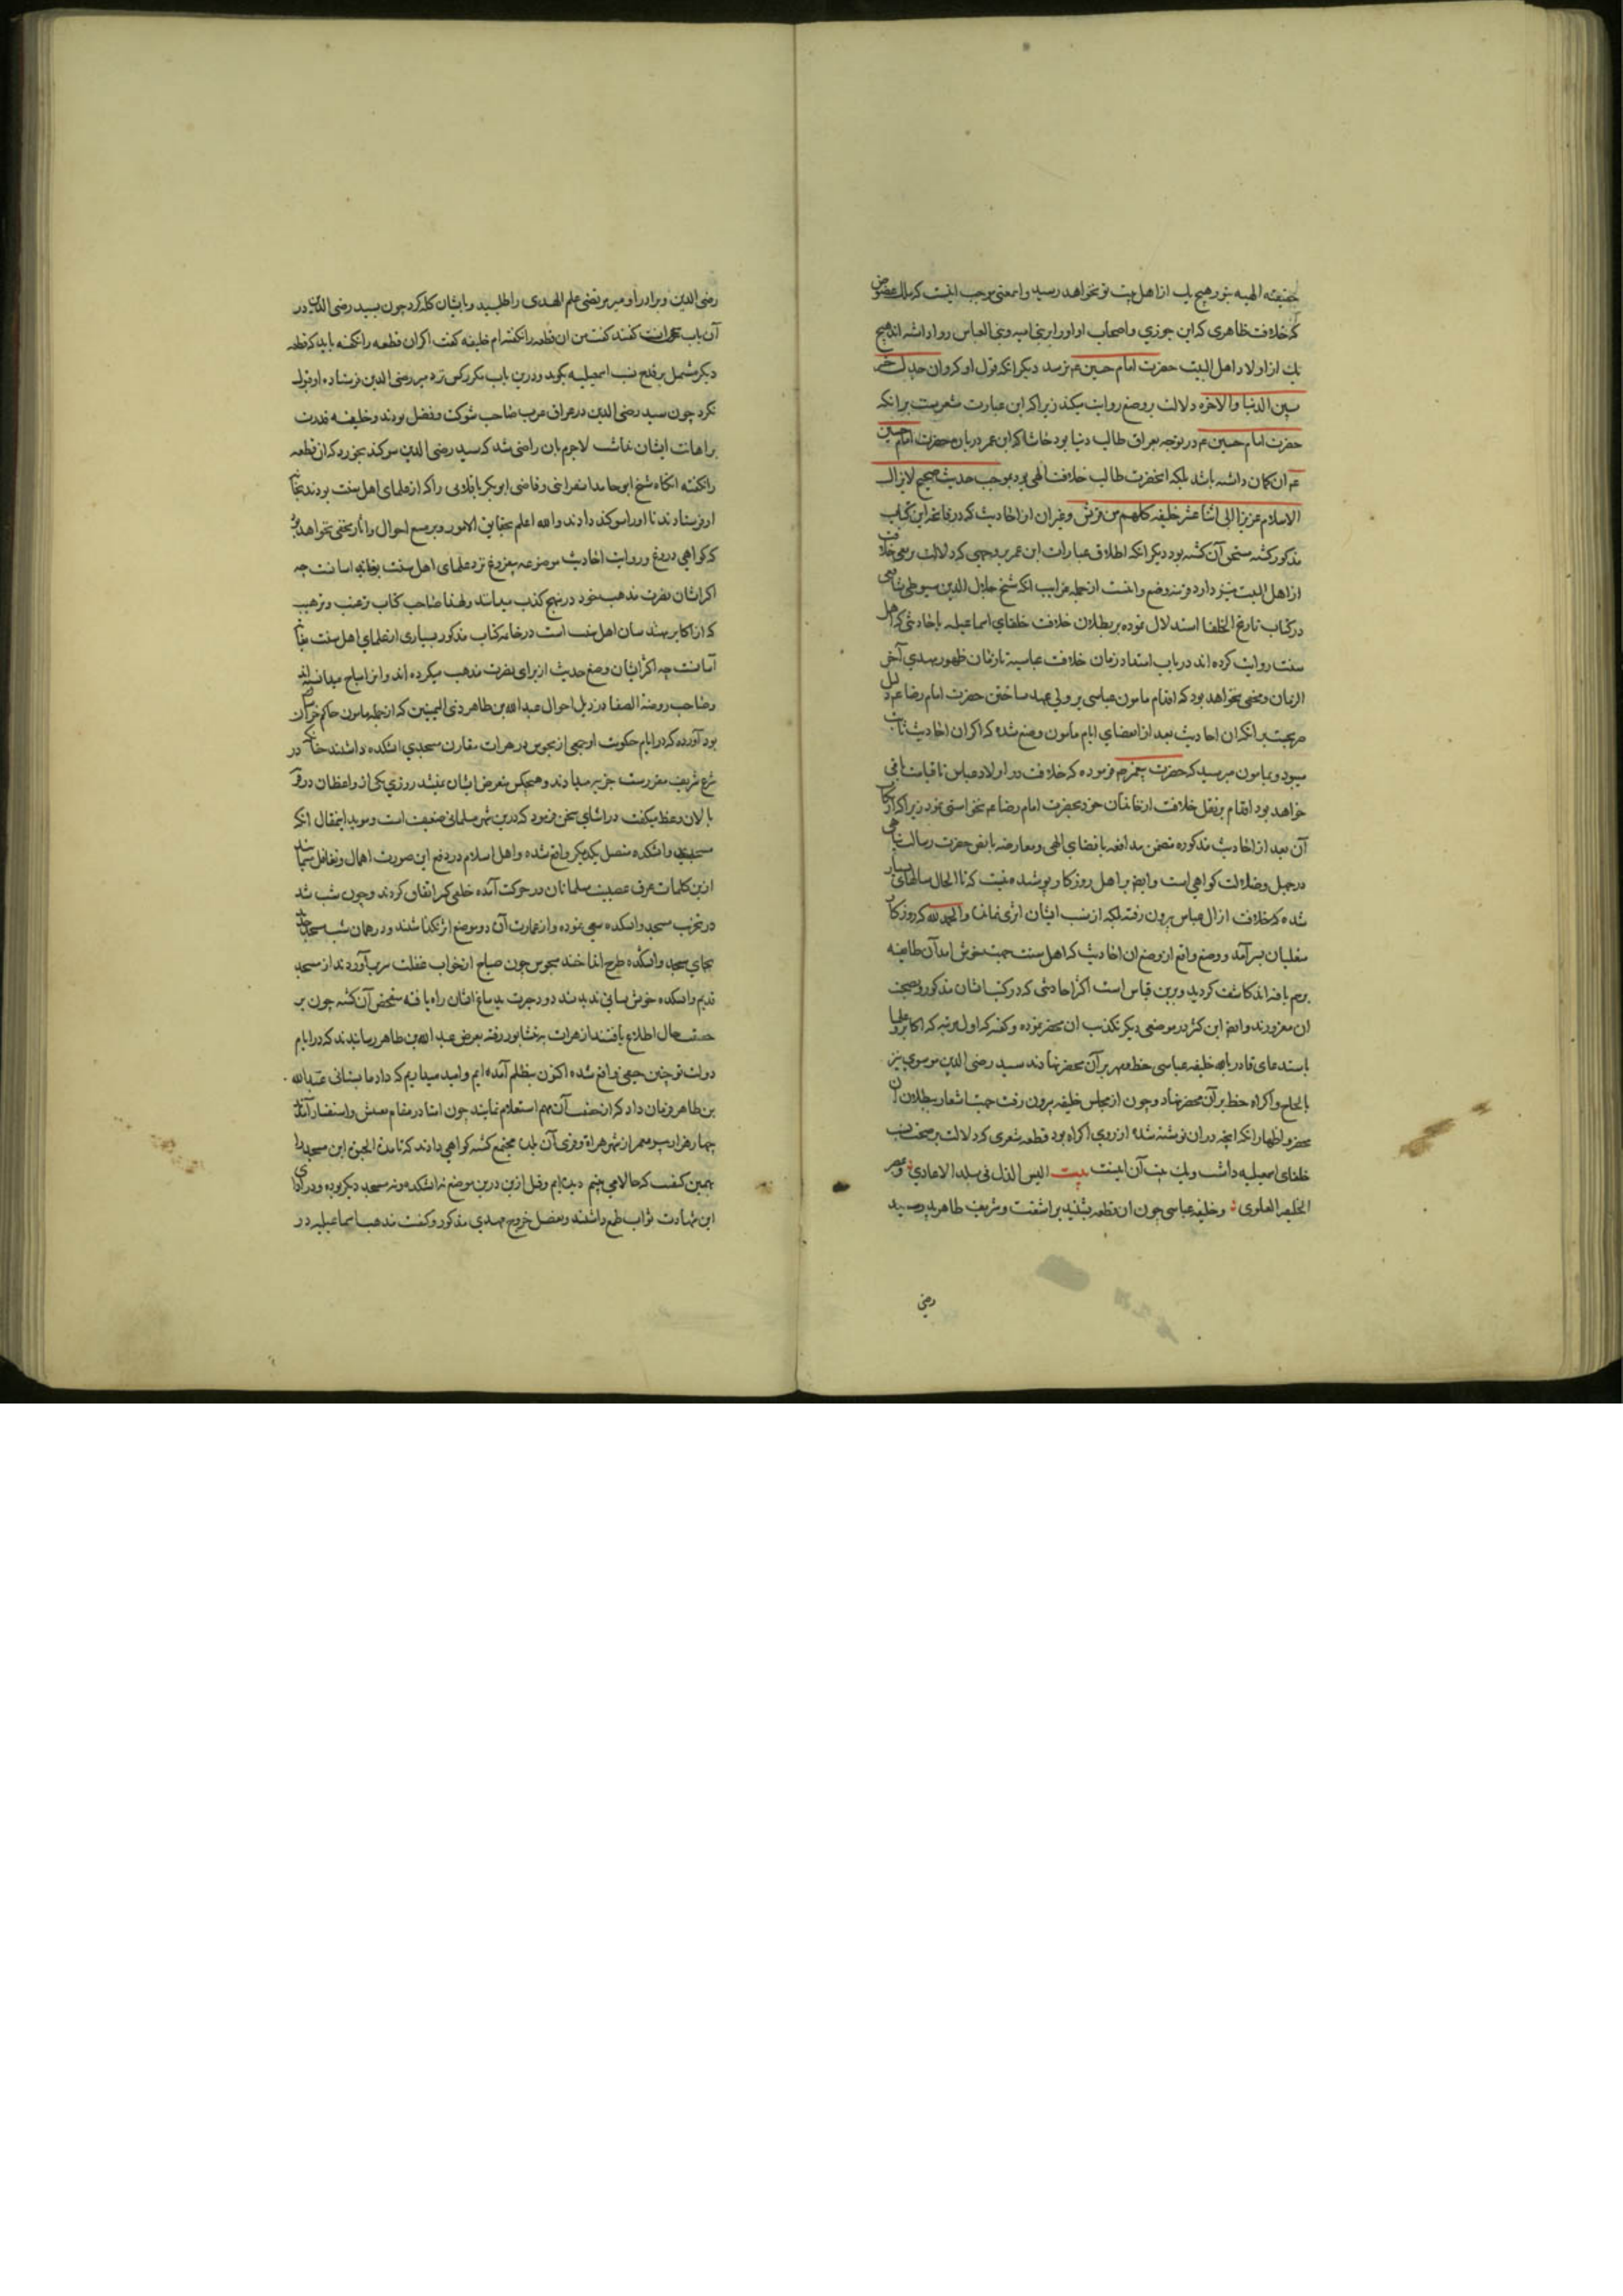 حقیقه الهیه بتو و هیچ یک از اهل بیت تو نخواهد رسید و این معنی موجب انیست که ملک عضوض
که خلافت ظاهری که ابن جوزی و اصحاب او او را بر بنی امیه و بنی العباس روا داشته اند هیچ
یک از اولاد اهل البیت حضرت امام حسین ع نرسد دیگر انکه قول او که وان جدک خیر
بین الدنیا والاخره دلالت بر وضع روایت میکند زیرا که این عبارت مشعرست بر انکه
حضرت امام حسین ع در توجه بعراق طالب دنیا بود حاشا که ابن عمر در باره حضرت امام حسین
ع آن کمان داشته باشد بلکه انحضرت طالب خلافت الهی بود بموجب حدیث صحیح لایزال
الاسلام عزیزا الی اثنا عشر خلیفه کلهم من قریش و غیر ان از احادیث که در فاتحه این کتاب
مذکور کشته مستحق آن کشته بود دیگر انکه اطلاق عبارات ابن عمر بر وجهی که دلالت بر نفی خلافت
از اهل البیت نیز دارد قرینه وضع و است از جمله غرایب انکه شیخ جلال الدین سیوطی شافعی
در کتاب تاریخ الخلفا استدلال نموده بر بطلان خلافت خلفای اسماعیلیه باحادیثی که اهل
سنت روایت کرده اند در باب امتداد زمان خلافت عباسیه تا زمان ظهور مهدی آخر
الزمان و مخفی نخواهد بود که اقدام مامون عباسی بر ولی عهد ساختن حضرت امام رضا ع دلیل
صریحست بر انکه ان احادیث بعد از انقضای ایام مامون وضع شده که اکر ان احادیث ثابت
میبود و بمامون میرسید که حضرت پیغمبر ص فرموده که خلافت در اولاد عباس تا قیامت باقی
خواهد بود اقدام بر نقل خلافت از خاندان خود بحضرت امام رضا ع نمی خواستی نمود زیرا که ارتکاب
آن بعد از احادیث مذکوره متضمن مدافعه با قضای الهی و معارضه با نص حضرت رسالت پناهی
در جهل و ضلالت کواهی است و ایضا بر اهل روزکار پوشیده نیست که تا الحال سالهای بسیار
شده که خلافت از ال عباس بیرون رفته بلکه از نسب ایشان اثری نمانده و الحمد لله که روزکار
متغلبان بسر آمد و وضع واقع از وضع ان احادیث که اهل سنت جهت خوش امد آن طایفه
بر هم بافته اند کاشف کردید و برین قیاس است اکثر احادیثی که در کتب ایشان مذکور و بصحت
ان مغرورند و ایضا ابن کثیر در موضعی دیکر تکذیب ان محضر نموده و کفته که اول مرتبه که اکابر و علما
باستدعای قادر بالله خلیفه عباسی خط و مهر بر آن محضر نهادند سید رضی الدین موسوی نیز
بالحاح و اکراه خط بر آن محضر نهاد و چون از مجلس خلیفه بیرون رفت جهت اشعار ببطلان ان
محضر و اظهار انکه انچه در ان نوشته شده از روی اکراه بود قطعه شعری که دلالت بر صحت نسب
خلفای اسمعیلیه داشت و یک بیت آن اینست بیت البس الذل فی بلد الاعادی و بمصر
الخلیفه العلوی و خلیفه عباسی چون ان قطعه بشنید بر اشفت و شریف طاهر پدر سید
رضی
رضی الدین و برادر او میر مرتضی علم الهدی را طلبید و با ایشان کله کرد چون بسید رضی الدین در
آن باب کفتند کفت من ان قطعه را نکفته ام خلیفه کفت اکر ان قطعه را نکفته باید که قطعه
دیکر مشتمل بر قدح نسب اسمعیلیه بکوید و درین باب مکرر کس نزد میر رضی الدین فرستاد و او قبول
نکرد چون سید رضی الدین در عراق عرب صاحب شوکت و فضل بودند و خلیفه قدرت
بر اهانت ایشان نداشت لاجرم بان راضی شد که سید رضی الدین سوکند بخورد که ان قطعه
را نکفته انکاه شیخ ابو حامد اسفراینی و قاضی ابو بکر باقلانی را که از علمای اهل سنت بودند بخانه
او فرستادند تا او را سوکند دادند والله اعلم بحقایق الامور و بر متتبع احوال و اثار مخفی نخواهد بود
که کواهی دروغ و روایت احادیث موضوعه بیفروغ نزد علمای اهل سنت بغایت اسانست چه
اکر ایشان نصرت مذهب خود در نهج کذب میدانند و لهذا صاحب کتاب ترغیب و ترهیب
که از اکابر محدثان اهل سنت است در خاتمه کتاب مذکور بسیاری از علمای اهل سنت بغایت
آسانست چه اکثر ایشان وضع حدیث از برای نصرت مذهب میکرده اند و انرا مباح میدانسته اند
و صاحب روضة الصفا در ذیل احوال عبد الله بن طاهر ذی الیمینین که از جمله مامون حاکم خراسان
بود آورده که در ایام حکومت او جمعی از مجوس در هرات مقارن مسجدی اتشکده داشتند چنانکه در
شرع شریف مقررست جزیه میدادند و هیچکس متعرض ایشان نمیشد روزی یکی از واعظان در فرق
بالان وعظ میکفت در اثنای سخن فرمود که درین شهر مسلمانی ضعیف است و موید اینمقال انکه
مسجدی و اتشکده متصل یکدیکر واقع شده و اهل اسلام در دفع این صورت اهمال و تغافل مینمایند
ازین کلمات عرق عصبیت مسلمانان در حرکت آمده خلقی کثیر اتفاق کردند و چون شب شد
در تخریب مسجد و اتشکده سعی نموده و از عمارت آن دو موضع اثر نکذاشتند و در همان شب مسجد جدید
بجای مسجد و اتشکده طرح انداختند مجوس چون صباح از خواب غفلت سر براوردند از مسجد
قدیم و اتشکده خویش نشانی ندیدند دود حیرت بدماغ ایشان راه یافته متفحص آن کشته چون بر
حقیقت حال اطلاع یافتند از هرات به نیشابور رفته بعرض عبد الله بن طاهر رسانیدند که در ایام
دولت تو چنین حیفی واقع شده اکنون بتظلم آمده ایم و امید میداریم که داد ما بستانی عبد الله
بن طاهر فرمان داد که از حقیقت آن مهم استعلام نمایند چون امنا در مقام تفتیش و استفسار آمدند
چهار هزار پیر معمر از شهر هراة و قرای آن بلده مجتمع کشته کواهی دادند که تا مدة العمر این مسجد را
بهمین کیفیت که حالا می بینیم دیده ایم و قبل ازین درین موضع نه اتشکده و نه مسجد دیکر بوده و در ادای
این شهادت ثواب طمع داشتند و بفضل خروج مهدی مذکور و کفت مذهب اسماعیلیه در